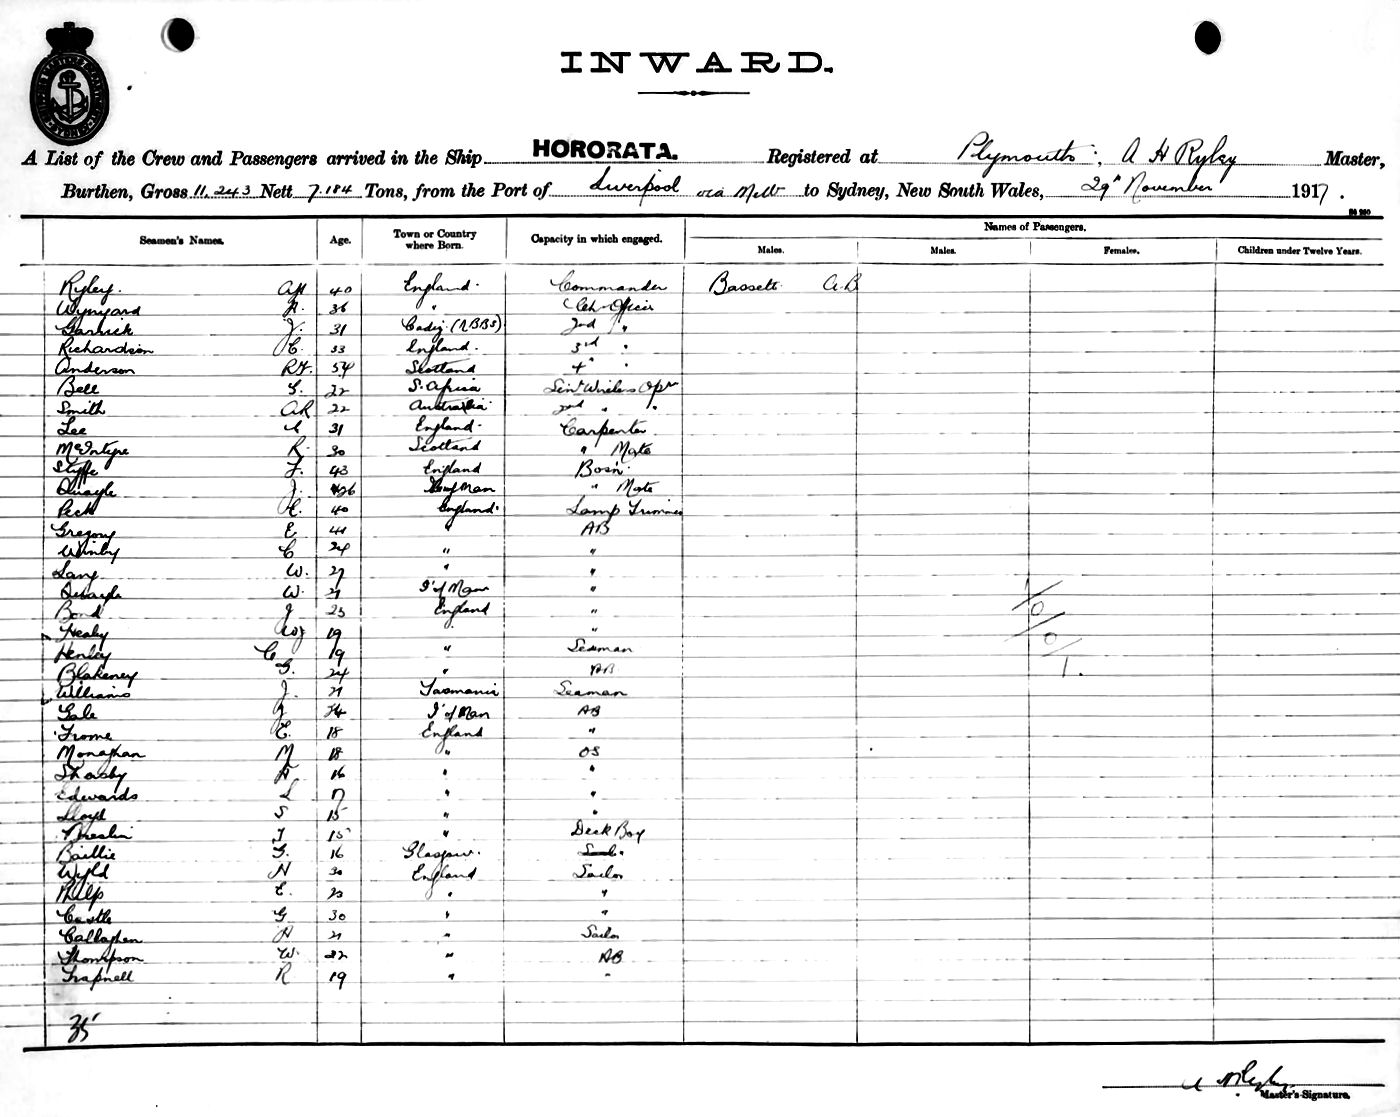 INWARD.
A List of the Crew and Passengers arrived in the Ship HORORATA. Registered at Plymouth, A H Ryley Master,
Burthen, Gross 11,243 Nett 7,184 Tons, from the Port of Liverpool via Melb to Sydney, New South Wales, 29th November 1917.
Names of Passengers.
Seamen's Names. Age. Town or Country where Born. Capacity in which engaged. Males. Males. Females. Children under Twelve Years.
Ryley. AH 40 England. Commander Bassett A.B
Wynyard 36 " Ch. Officer
Garrick J. 31 Cadiz (RBBS) 2nd "
Richardson C. 33 England. 3rd "
Anderson 54 Scotland 4th "
Bell G. 22 S. Africa Senr Wireless Opr
Smith AR 22 Australia 2nd " "
Lee 31 England. Carpenter
McIntyre R. 30 Scotland " Mate
F. 43 England Bosn
Quayle J. Mate
Peck C. 40 England. Lamp Trimmer
Gregory E. " AB
C 24 " "
Lang W. 27 " "
Quayle W. 21 I of Man "
Bond J 25 England "
Healy 19 " "
Henley C 19 " Seaman
Blakeney G. 24 " AB
Williams J. 21 Tasmania Seaman
Gale J 24 I of Man AB
Frome C. 18 England "
Monaghan M 18 " OS
H 16 " "
Edwards L 17 " "
Lloyd S 15 " "
Breslin T 15 " Deck Boy
Baillie G. 16 Glasgow.
Wyld H 30 England Sailor
Philp E. 23 " "
Castle G 30 " "
Callaghan H 21 " Sailor
Thompson W. 22 " AB
Trapnell R 19 " "
35
1/0/0/1.
A H Ryley
Master's Signature.